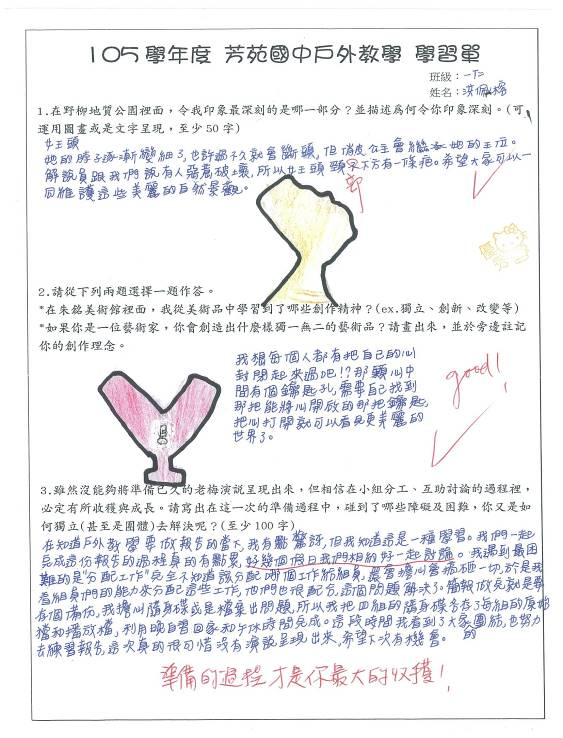 105 學年度 芳苑國中戶外教學 學習單
班級：一仁
姓名：洪佩
1.在野柳地質公園裡面，令我印象最深刻的是哪一部分？並描述為何令你印象深刻。(可
運用圖畫或是文字呈現，至少 50 字)
女王頭
她的脖子逐漸變細了,也許過不久就會斷頭,但俏皮公主會繼承她的王位。
解說員跟我們說有人惡意破壞,所以女王頭 頸部下方有一條疤。希望大家可以一
同維護這些美麗的自然景觀。
部
2.請從下列兩題選擇一題作答。
*在朱銘美術館裡面，我從美術品中學習到了哪些創作精神？(ex.獨立、創新、改變等)
*如果你是一位藝術家，你會創造出什麼樣獨一無二的藝術品？請畫出來，並於旁邊註記
你的創作理念。
我想每個人都有把自己的心
封閉起來過吧!?那顆心中
間有個鑰匙孔,需要自己找到
那把能將心開啟的那把鑰匙,
把心打開就可以看見更美麗的
世界了。
good!
3.雖然沒能夠將準備已久的老梅演說呈現出來，但相信在小組分工、互助討論的過程裡，
必定有所收穫與成長。請寫出在這一次的準備過程中，碰到了哪些障礙及困難，你又是如
何獨立(甚至是團體)去解決呢？(至少 100 字)
在知道戶外教學要做報告的當下,我有點驚訝,但我知道這是一種學習。我們一起
完成這份報告的過程真的有點累,好幾個假日我們相約好一起討論。我遇到最困
難的是"分配工作"完全不知道該分配哪個工作給組員,還會擔心會搞砸一切,於是我
看組員們的能力來分配這些工作,他們也很配合,這個問題解決了。簡報做完就是要
存個備份,我擔心隨身碟或是檔案出問題,所以我把四組的隨身碟各存了每組的原始
檔和播放檔,利用晚自習回家和午休時間完成。這段時間我看到了大家的團結,也努力
去練習報告,這次真的很可惜沒有演說呈現出來,希望下次有機會。
準備的過程才是你最大的收穫!